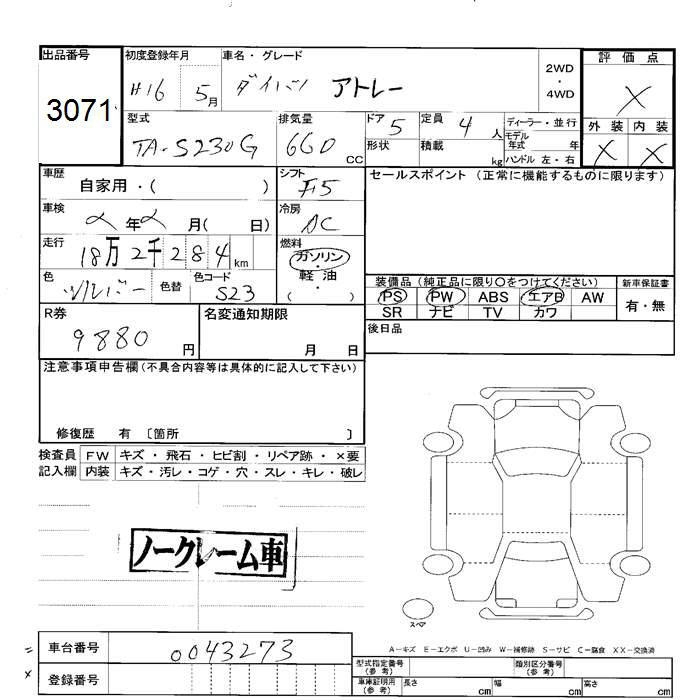 出品番号 初度登録年月 車名・グレード 2WD 評価点
3071 H16 5月 ダイハツ アトレー ・4WD X
型式 排気量 ドア 5 定員 4人 ディーラー・並行 外装 内装
TA-S230G 660 CC 形状 積載 kg モデル年式 年 X X
ハンドル 左・右
車歴 自家用・( ) シフト F5 セールスポイント(正常に機能するものに限ります)
車検 年 月( 日) 冷房 AC
走行 18万2千284km 燃料 ガソリン・軽油・( )
色 シルバー 色替 色コード S23 装備品(純正品に限り○をつけてください) 新車保証書
PS PW ABS エアB AW 有・無
R券 名変通知期限 SR ナビ TV カワ
9880円 月 日 後日品
注意事項申告欄(不具合内容等は具体的に記入して下さい)
修復歴 有 〔箇所 〕
検査員 FW キズ・飛石・ヒビ割・リペア跡・×要
記入欄 内装 キズ・汚レ・コゲ・穴・スレ・キレ・破レ
ノークレーム車
スペア
A-キズ E-エクボ U-凹み W-補修跡 S-サビ C-腐食 XX-交換済
= 車台番号 0043273
型式指定番号(参考) 類別区分番号(参考)
x 登録番号
車庫証明用(参考) 長さ cm 幅 cm 高さ cm